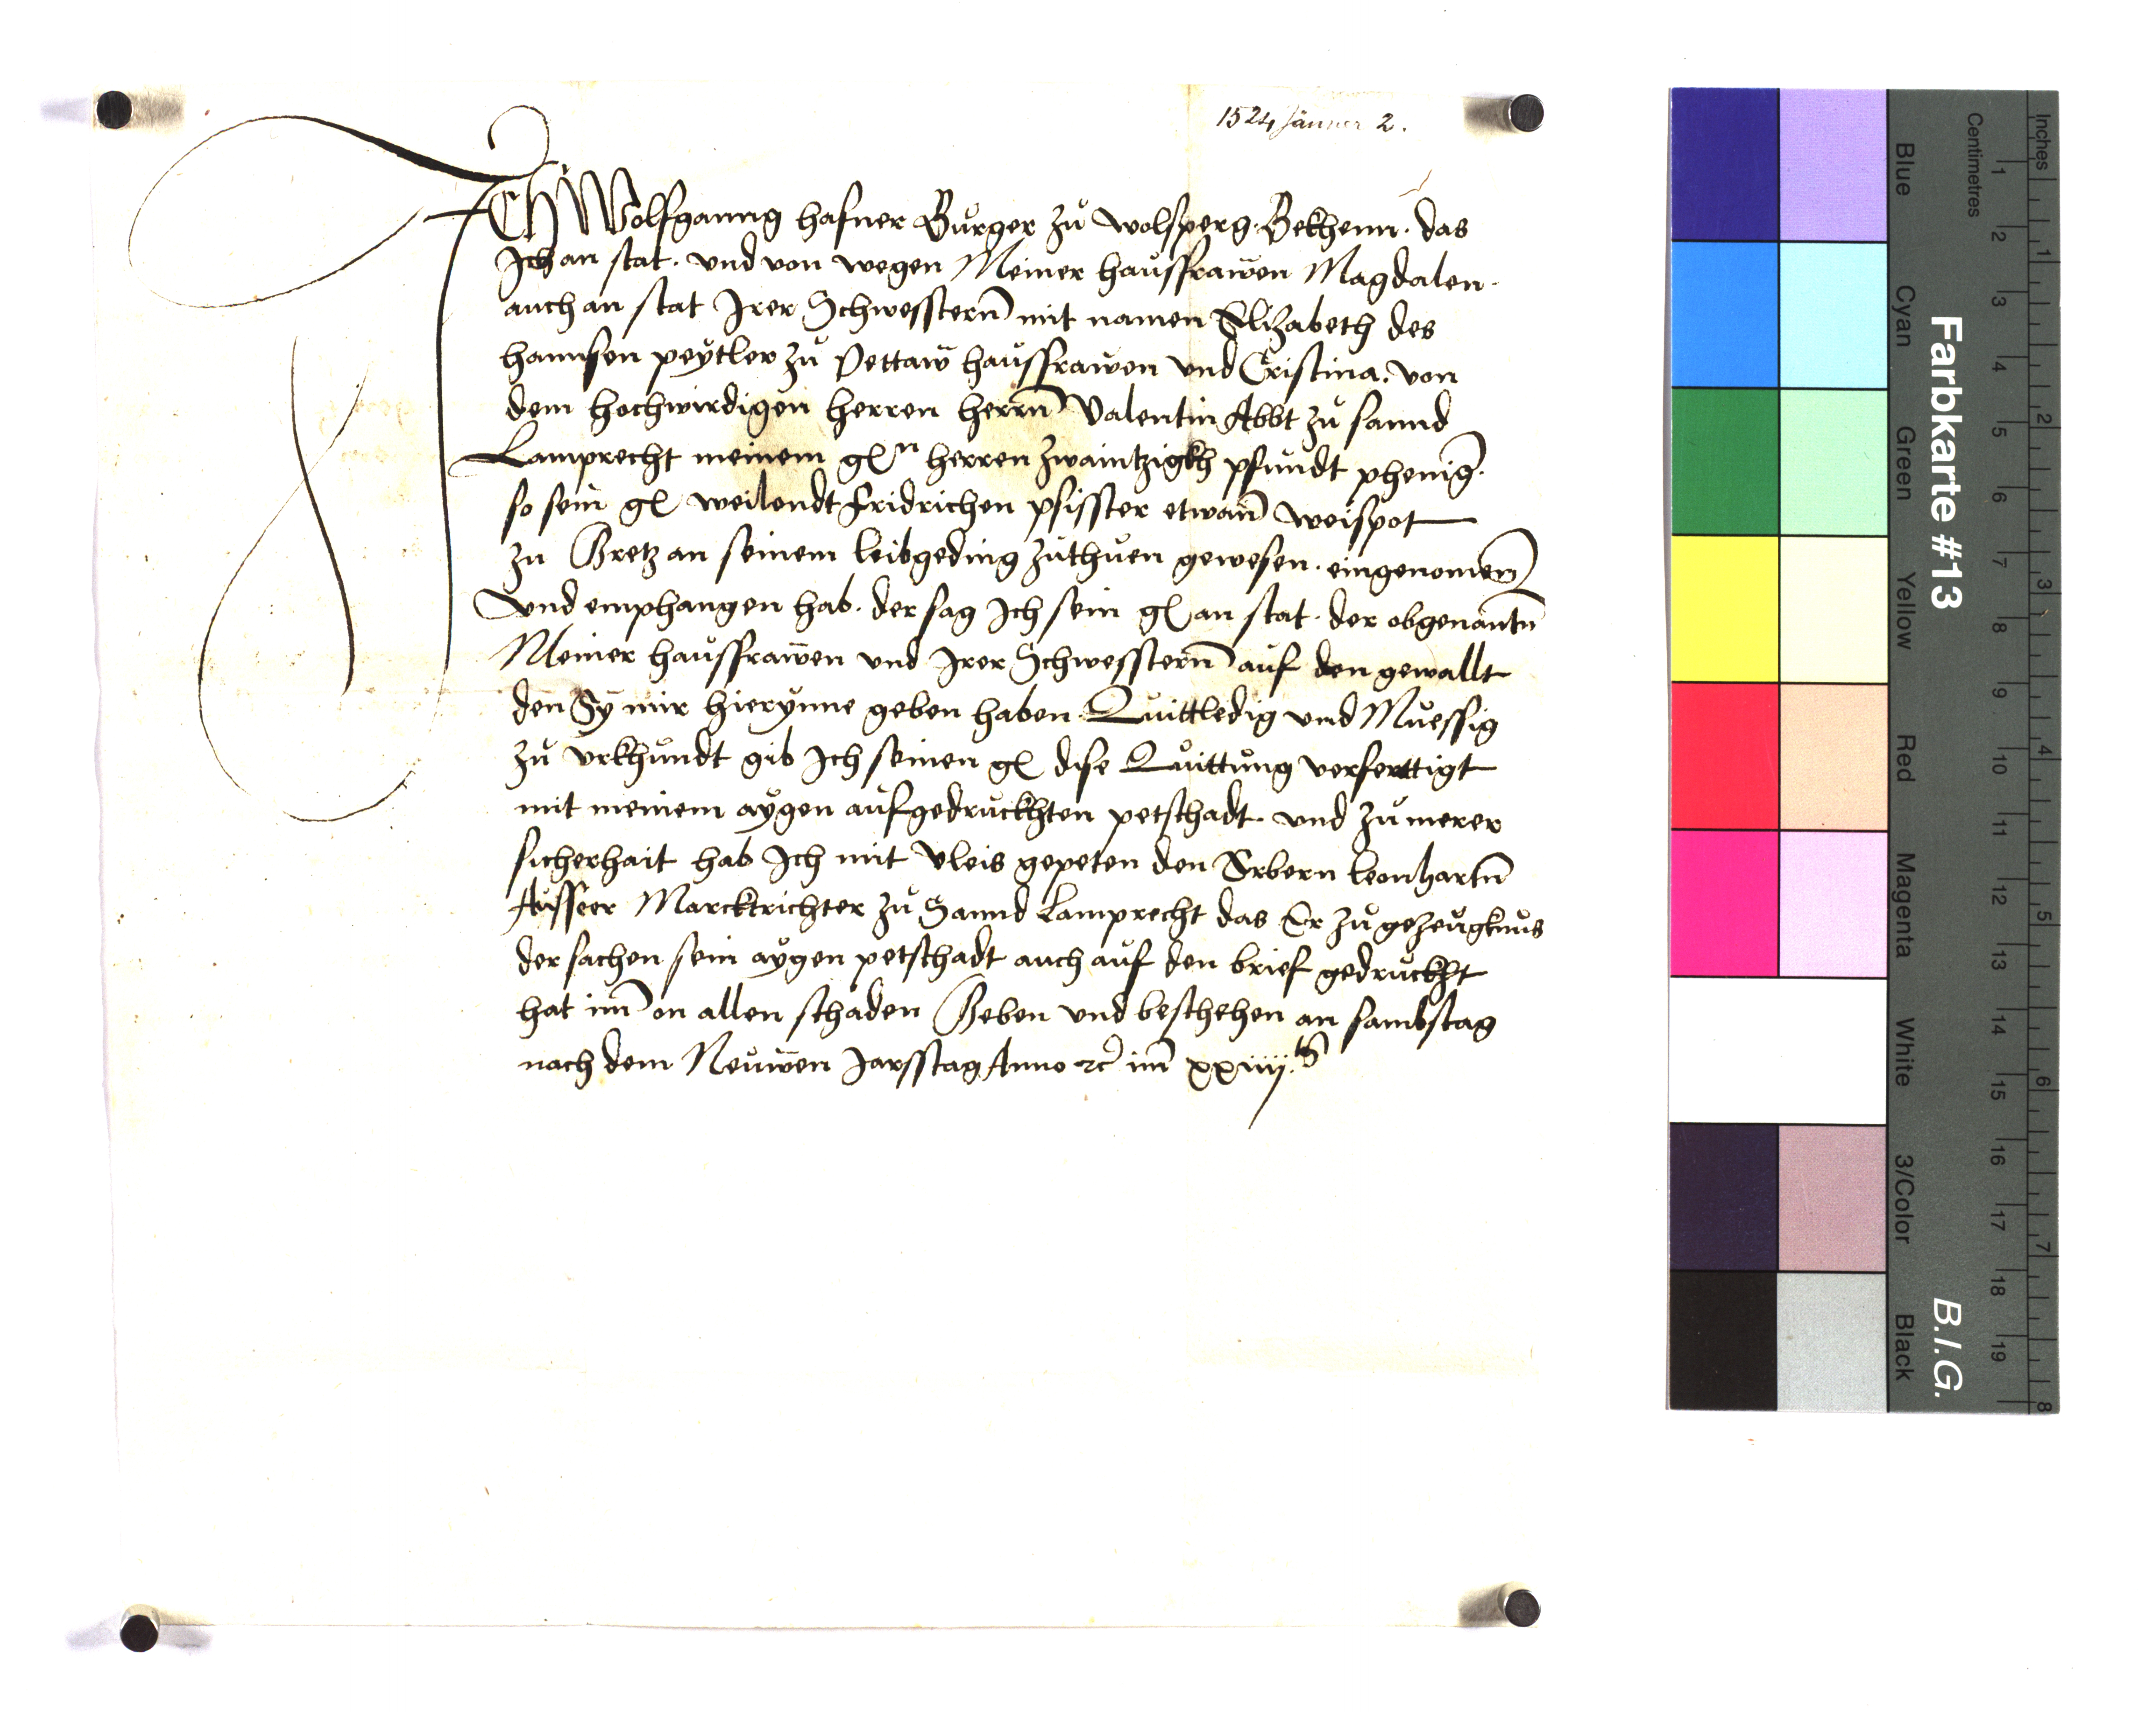 1524 Jänner 2.
ICH Wolfganng hafner Burger zu wolfsperg. Bekhenn. das
Ich an stat. vnd von wegen Meiner haussfrawen Magdalen.
auch an stat Irer Schwesstern mit namen Elizabeth des
hannsen peytler zu Pettaw haussfrawen vnd Cristina. von
dem hochwirdigen herren herrn Valentin Abbt zu sannd
Lamprecht meinem gn herren zwaintzigkh pfundt phenig.
so sein g weilendt Fridrichen pfisster etwan weispot
zu Gretz an seinem leibgeding zuthuen gewesen. eingenomen
vnd emphangen hab. der sag Ich sein g an stat. der obgenantn
Meiner haussfrawen vnd Irer Schwesstern auf den gewallt
den Sy mir hierynne geben haben. Quittledig vnd Muessig
zu vrkhundt gib Ich seinen g dise Quittung verferttigt
mit meinem aygen aufgedruckhten petschadt. vnd zu merer
sicherhait hab Ich mit Vleis gepeten den Erbern leonhartn
Ausseer Marcktrichter zu Sannd Lamprecht das Er zu gezeugknus
der sachen sein aygen petschadt auch auf den brief gedruckht
hat im on allen schaden Geben vnd beschehen an sambstag
nach dem Neuwen Jarsstag Anno etc im xxiiij.
Farbkarte #13
B.I.G.
Blue
Cyan
Green
Yellow
Red
Magenta
White
3/Color
Black
Centimetres
1 2 3 4 5 6 7 8 9 10 11 12 13 14 15 16 17 18 19
Inches
1 2 3 4 5 6 7 8